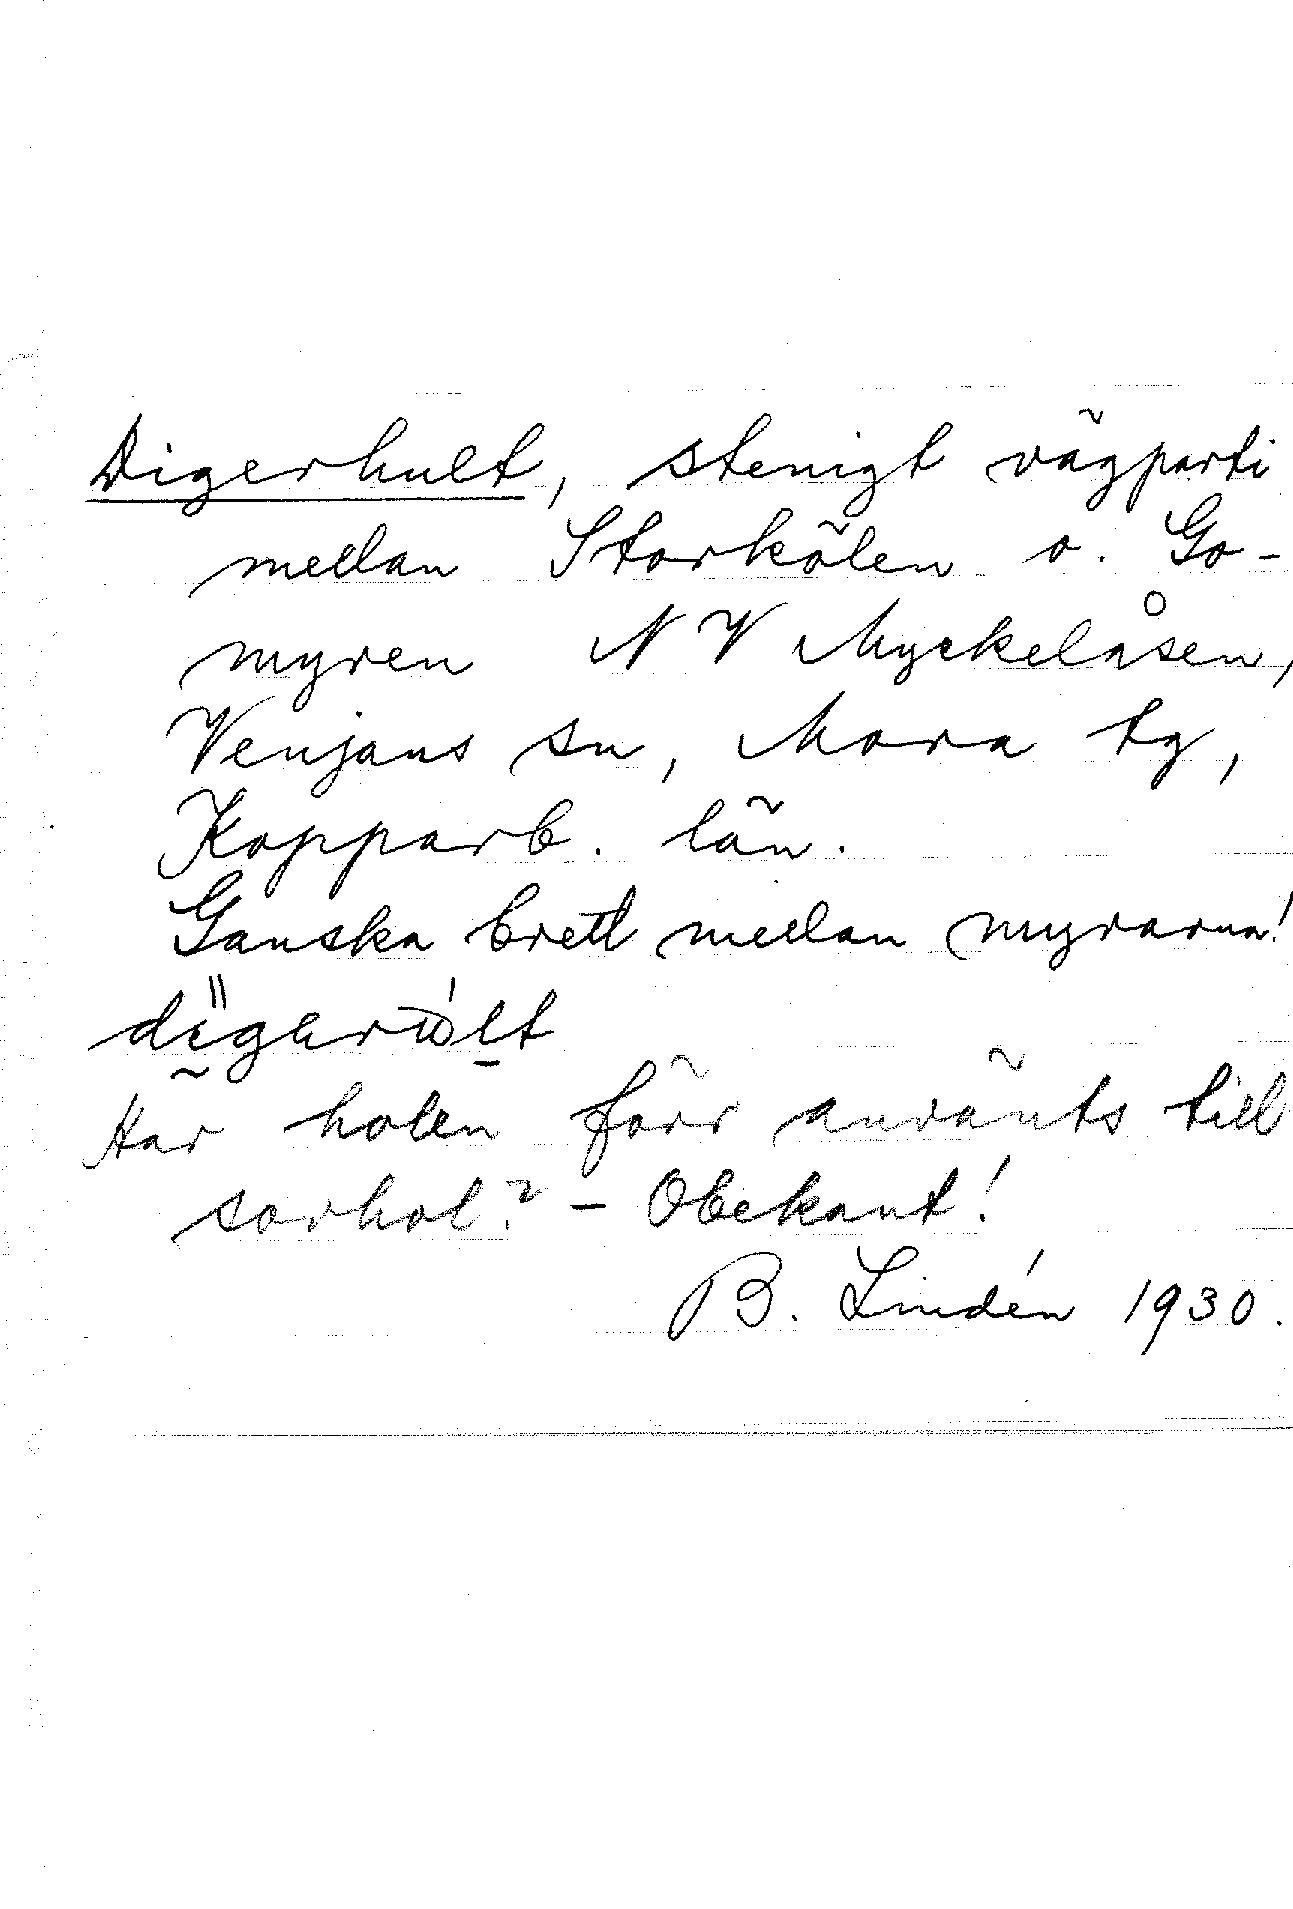 Digerhult, stenigt vägparti
mellan Storkölen o. Go-
myren NV Myckelåsen,
Venjans sn, Mora tg,
Kopparb. län.
Ganska brett mellan myrarna!
Här holen förr använts till
sorhol? – Obekant!
B. Lindén 1930.